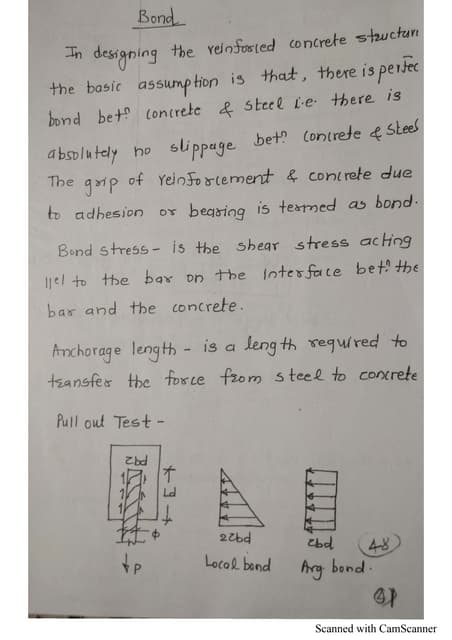 Bond
In designing the reinforced concrete structure
the basic assumption is that, there is perfec
bond betn concrete & steel i.e. there is
absolutely no slippage betn concrete & steel
The grip of reinforcement & concrete due
to adhesion or bearing is termed as bond.
Bond stress - is the shear stress acting
llel to the bar on the interface betn the
bar and the concrete.
Anchorage length - is a length required to
transfer the force from steel to concrete
Pull out Test -
τbd
Ld
ϕ
P
2τbd
Local bond
τbd
Avg bond.
48
Scanned with CamScanner